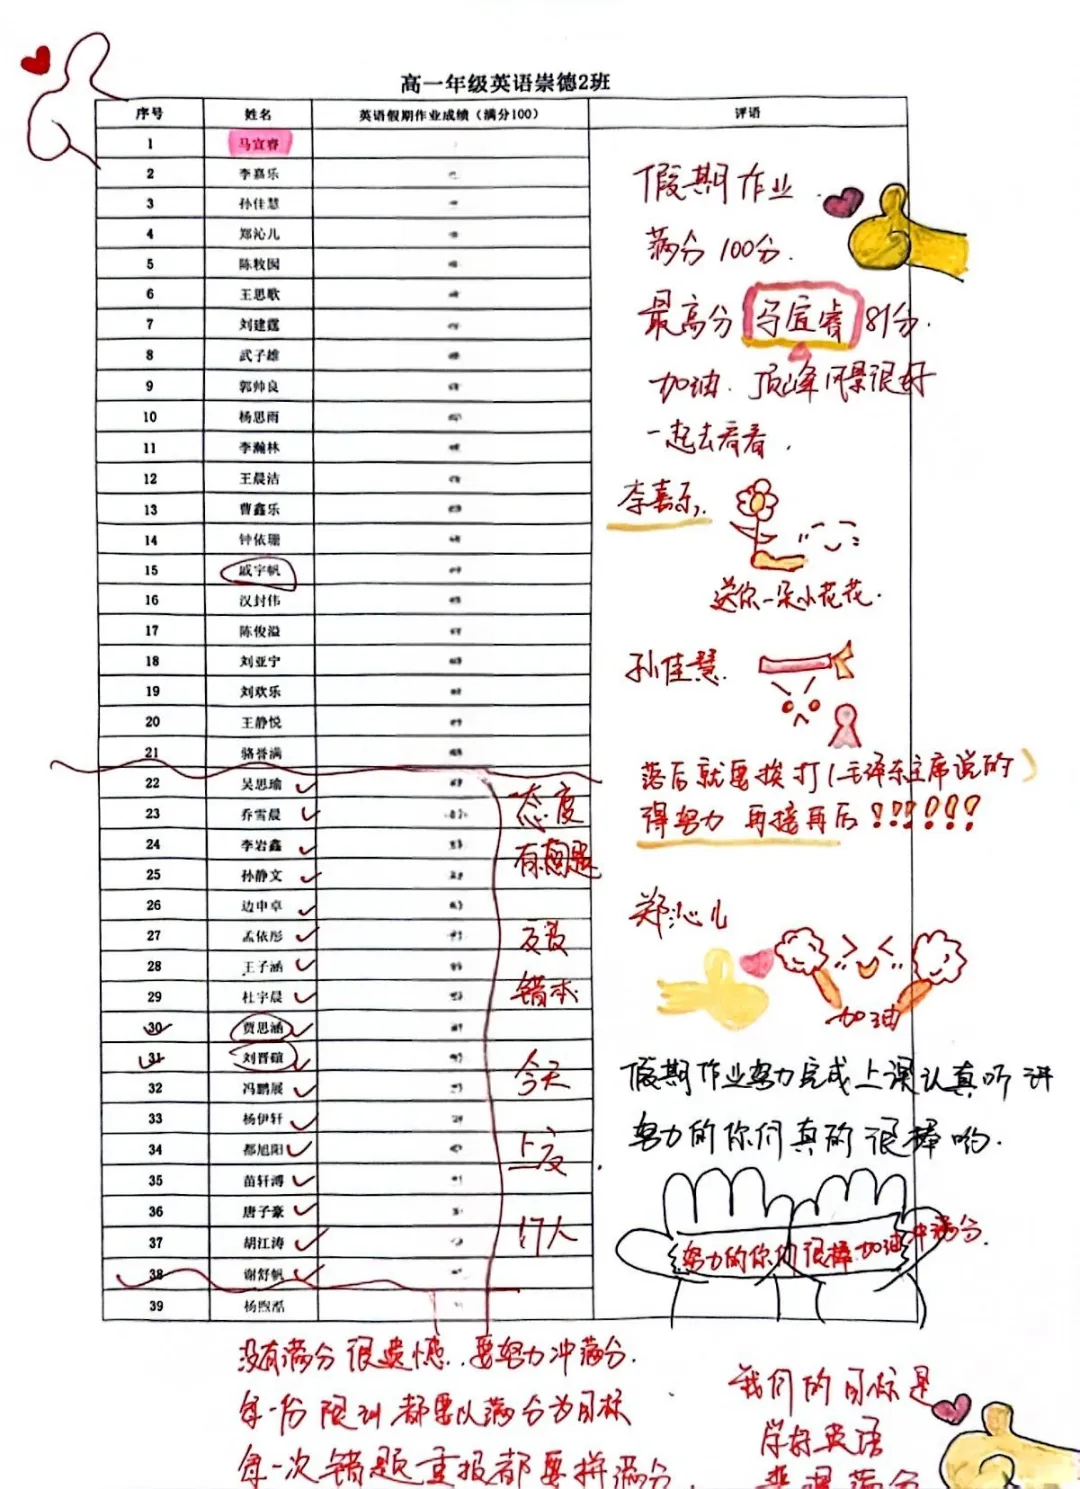 高一年级英语崇德2班
序号 姓名 英语假期作业成绩（满分100） 评语
1 马宜睿
2 李嘉乐
3 孙佳慧
4 郑沁儿
5 陈牧园
6 王思歌
7 刘建霆
8 武子雄
9 郭帅良
10 杨思雨
11 李瀚林
12 王晨洁
13 曹鑫乐
14 钟依珊
15 戚宇帆
16 汉封伟
17 陈俊溢
18 刘亚宁
19 刘欢乐
20 王静悦
21 骆誉满
22 吴思瑜
23 乔雪晨
24 李岩鑫
25 孙静文
26 边申卓
27 孟依彤
28 王子涵
29 杜宇晨
30 贾思涵
31 刘晋碹
32 冯鹏展
33 杨伊轩
34 都旭阳
35 苗轩溥
36 唐子豪
37 胡江涛
38 谢舒帆
39 杨煦泓
态度
有问题
错本
今天
上交
17人
假期作业
满分100分.
最高分 马宜睿 81分.
加油.顶峰风景很好
一起去看看.
李嘉乐,
送你一朵小花花.
孙佳慧.
落后就要挨打(毛泽东主席说的)
得努力 再接再后!!!!!!
郑沁儿
加油
假期作业努力完成上课认真听讲
努力的你们真的很棒哟.
努力的你们很棒加油冲满分.
没有满分很遗憾..要努力冲满分.
每一份限训都要以满分为目标
每一次错题重报都要拼满分.
我们的目标是
学好英语
满分